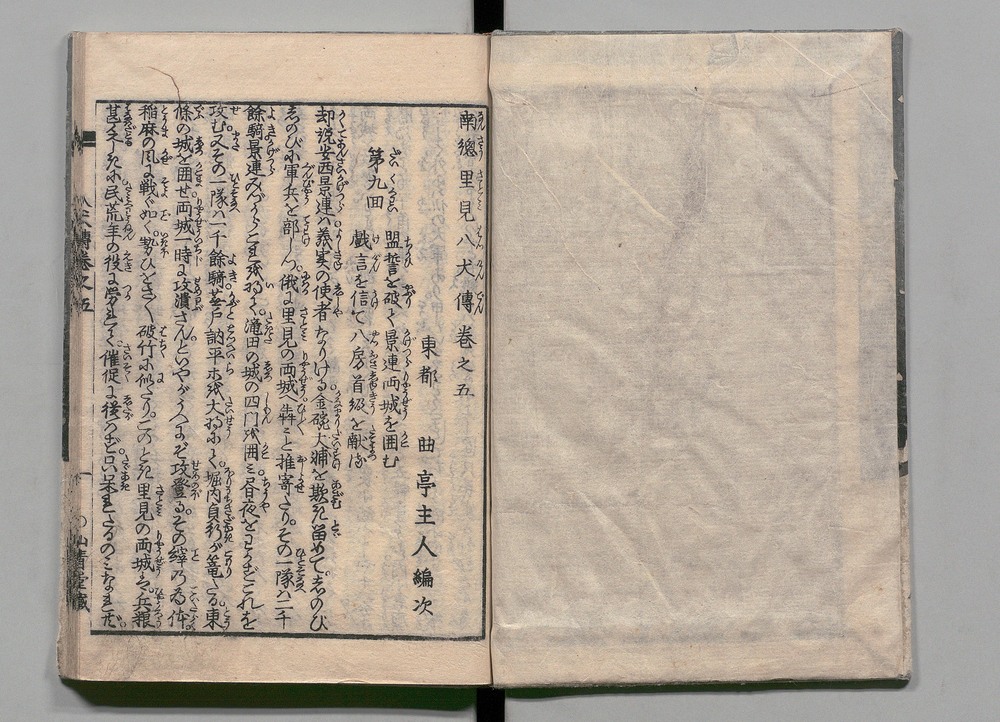 南總里見八犬傳巻之五
東都 曲亭主人編次
第九回 盟誓を破て景連両城を囲む
戯言を信て八房首級を献る
却説安西景連ハ義実の使者なりける金碗大輔を欺き留めて。しのび
しのびに軍兵を部しつ。俄に里見の両城へ犇々と推寄たり。その一隊ハ二千
餘騎景連みづからこれを将て。滝田の城の四門を囲ミ昼夜をわかずこれを
攻む。又その一隊ハ一千餘騎蕪戸訥平等を大将にて。堀内貞行が篭たる東
條の城を囲せ両城一時に攻潰さんといやがうへにぞ攻登る。その
稲麻の風に戦ぐ如く。勢ひをさ〳〵破竹に似たり。このとき里見の両城ハ。兵粮
甚乏しきに民荒年の役に労れて。催促に後のミなれども。
八犬傳巻之五
一
〇山青堂藏